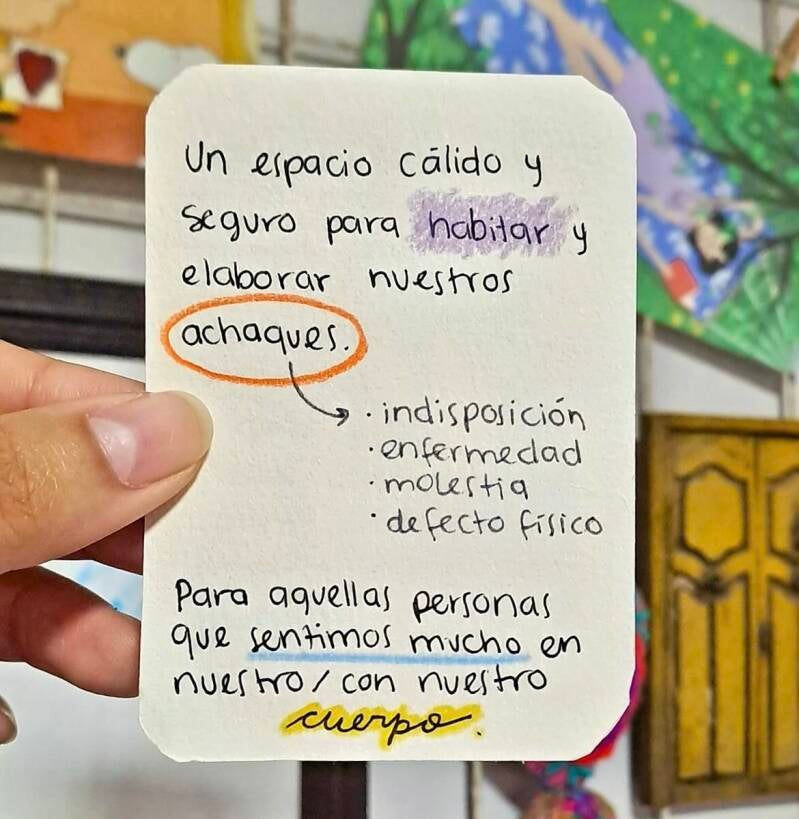 Un espacio cálido y
seguro para habitar y
elaborar nuestros
achaques.
· indisposición
· enfermedad
· molestia
· defecto físico
Para aquellas personas
que sentimos mucho en
nuestro/con nuestro
cuerpo.